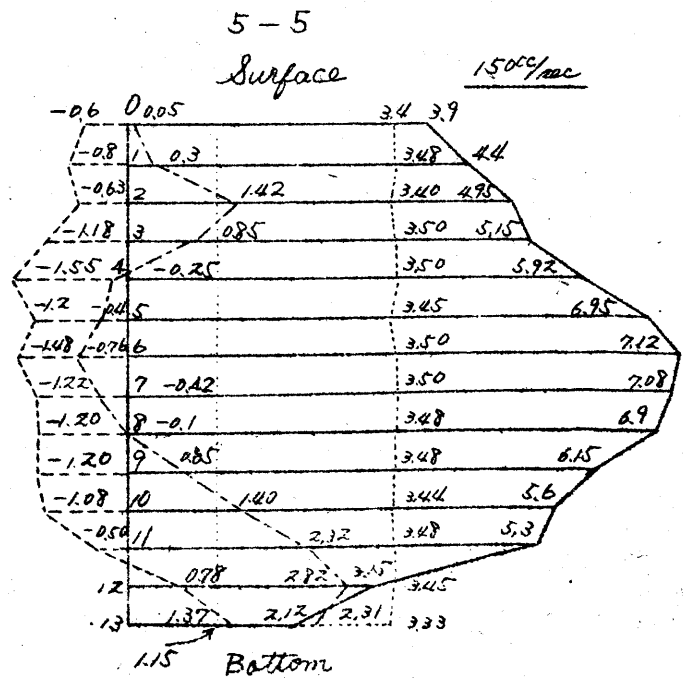 5-5
Surface
150cc/sec
-0.6 0 0.05 3.4 3.9
-0.8 1 0.3 3.48 4.4
-0.63 2 1.42 3.40 4.95
-1.18 3 0.85 3.50 5.15
-1.55 4 -0.25 3.50 5.92
-1.2 -0.4 5 3.45 6.95
-1.48 -0.76 6 3.50 7.12
-1.22 7 -0.42 3.50 7.08
-1.20 8 -0.1 3.48 6.9
-1.20 9 0.65 3.48 6.15
-1.08 10 1.40 3.44 5.6
-0.50 11 2.32 3.48 5.3
12 0.78 2.82 3.15 3.45
13 1.37 2.12 2.31 3.33
1.15 Bottom